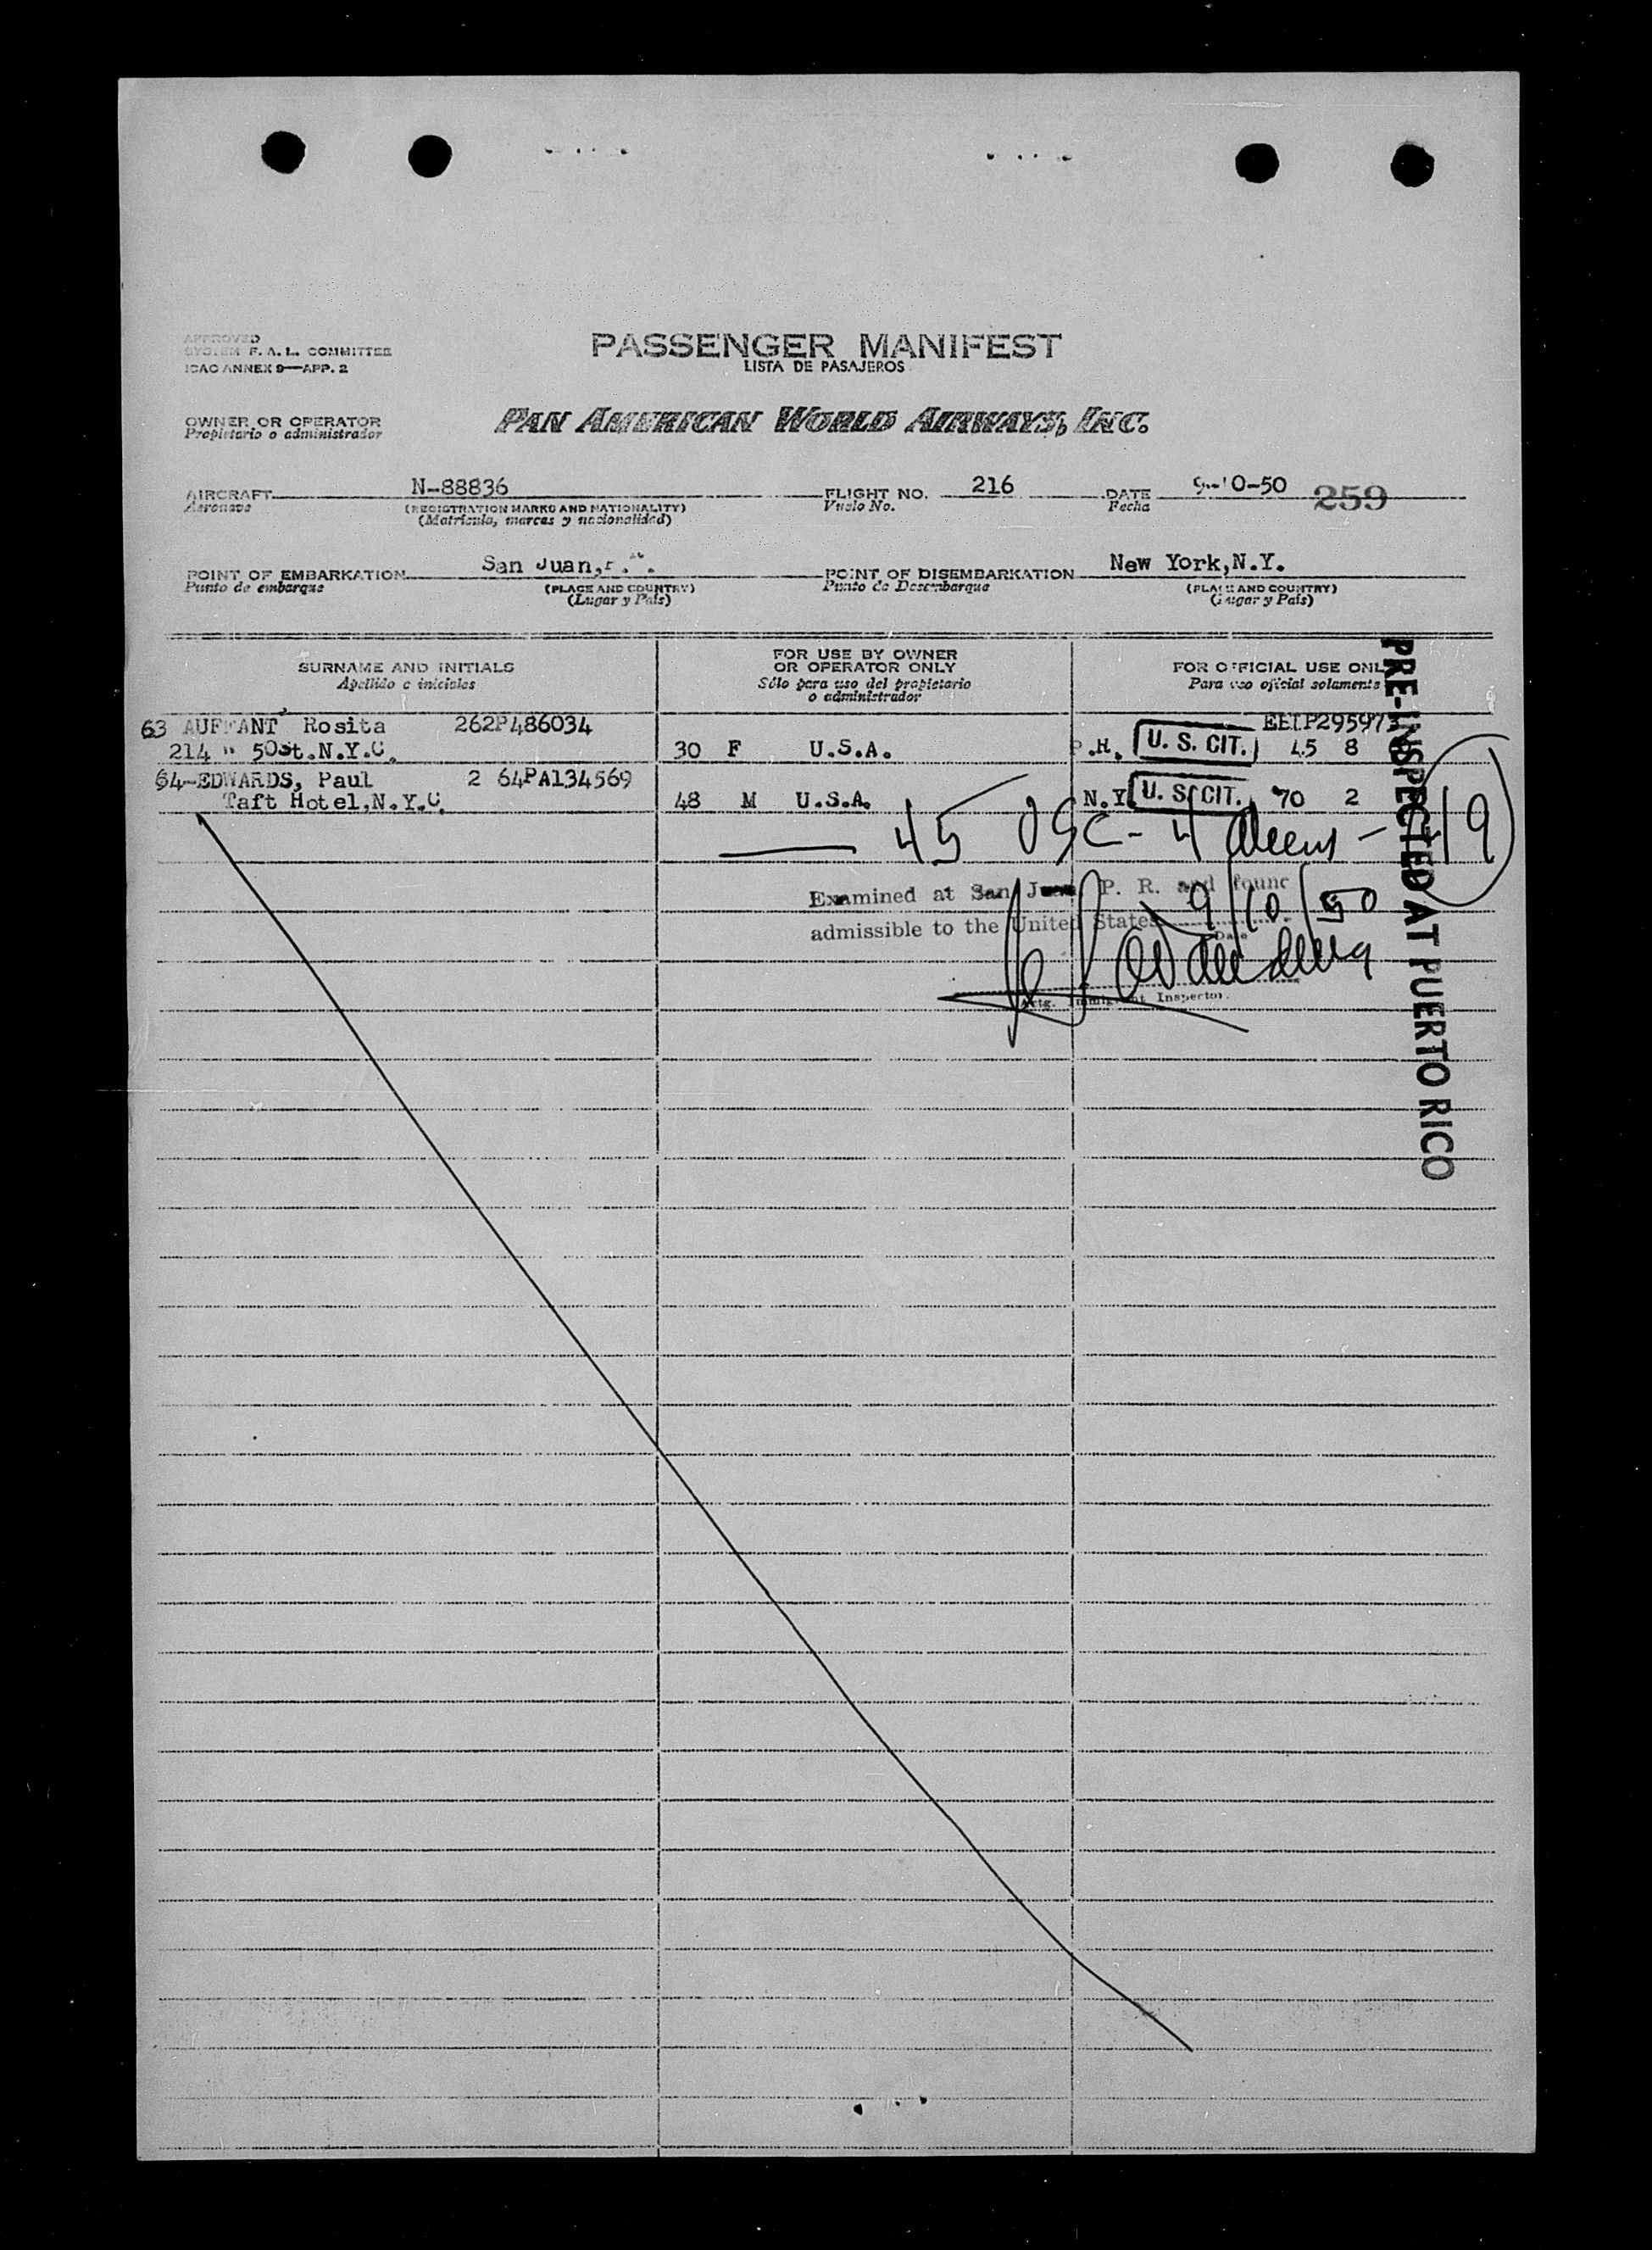 APPROVED
SYSTEM F. A. L. COMMITTEE
ICAO ANNEX 9—APP. 2
PASSENGER MANIFEST
LISTA DE PASAJEROS
OWNER OR OPERATOR
Propietario o administrador
PAN AMERICAN WORLD AIRWAYS, INC.
AIRCRAFT N-88836 FLIGHT NO. 216 DATE 9-10-50 259
Aeronave (REGISTRATION MARKS AND NATIONALITY) Vuelo No. Fecha
(Matrícula, marcas y nacionalidad)
POINT OF EMBARKATION San Juan, POINT OF DISEMBARKATION New York,N.Y.
Punto de embarque (PLACE AND COUNTRY) Punto de Desembarque (PLACE AND COUNTRY)
(Lugar y País) (Lugar y País)
SURNAME AND INITIALS
Apellido e iniciales
FOR USE BY OWNER
OR OPERATOR ONLY
Sólo para uso del propietario
o administrador
FOR OFFICIAL USE ONL
Para uso oficial solamente
63 AUFFANT Rosita 262P486034
214 W 50St.N.Y.C. 30 F U.S.A. P.H. U. S. CIT. 45 8
64-EDWARDS, Paul 2 64PA134569
Taft Hotel,N.Y.C. 48 M U.S.A. N.Y. U. S. CIT. 70 2
45 USC - 4 Aliens -
Examined at San Juan P. R. and found
9/10/50
admissible to the United States
Date
Actg. Immigrant Inspector.
PRE-INSPECTED AT PUERTO RICO